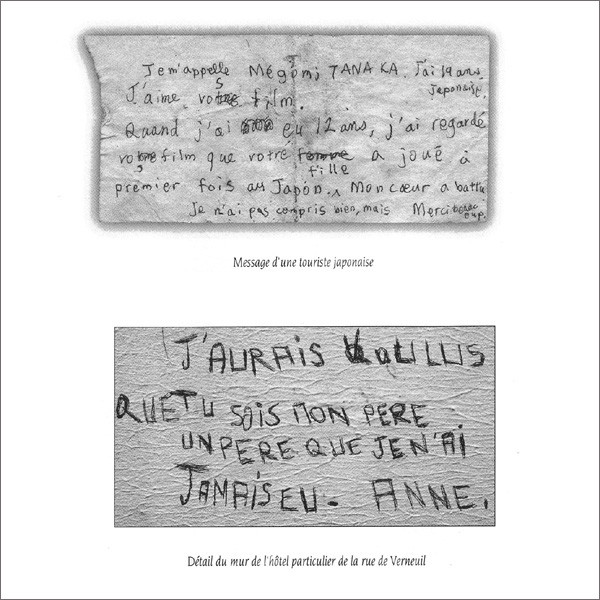 Je m'appelle Mégumi TANAKA. J'ai 19 ans,
Japonaise.
J'aime vos film.
Quand j'ai eu 12 ans, j'ai regardé
vos film que votre femme a joué à
fille
premier fois au Japon. Mon cœur a battu
Je n'ai pas compris bien, mais Merci beauc
oup.
Message d'une touriste japonaise
J'AURAIS VOULUS
QUE TU SOIS MON PERE
UN PERE QUE JE N'AI
JAMAIS EU - ANNE.
Détail du mur de l'hôtel particulier de la rue de Verneuil